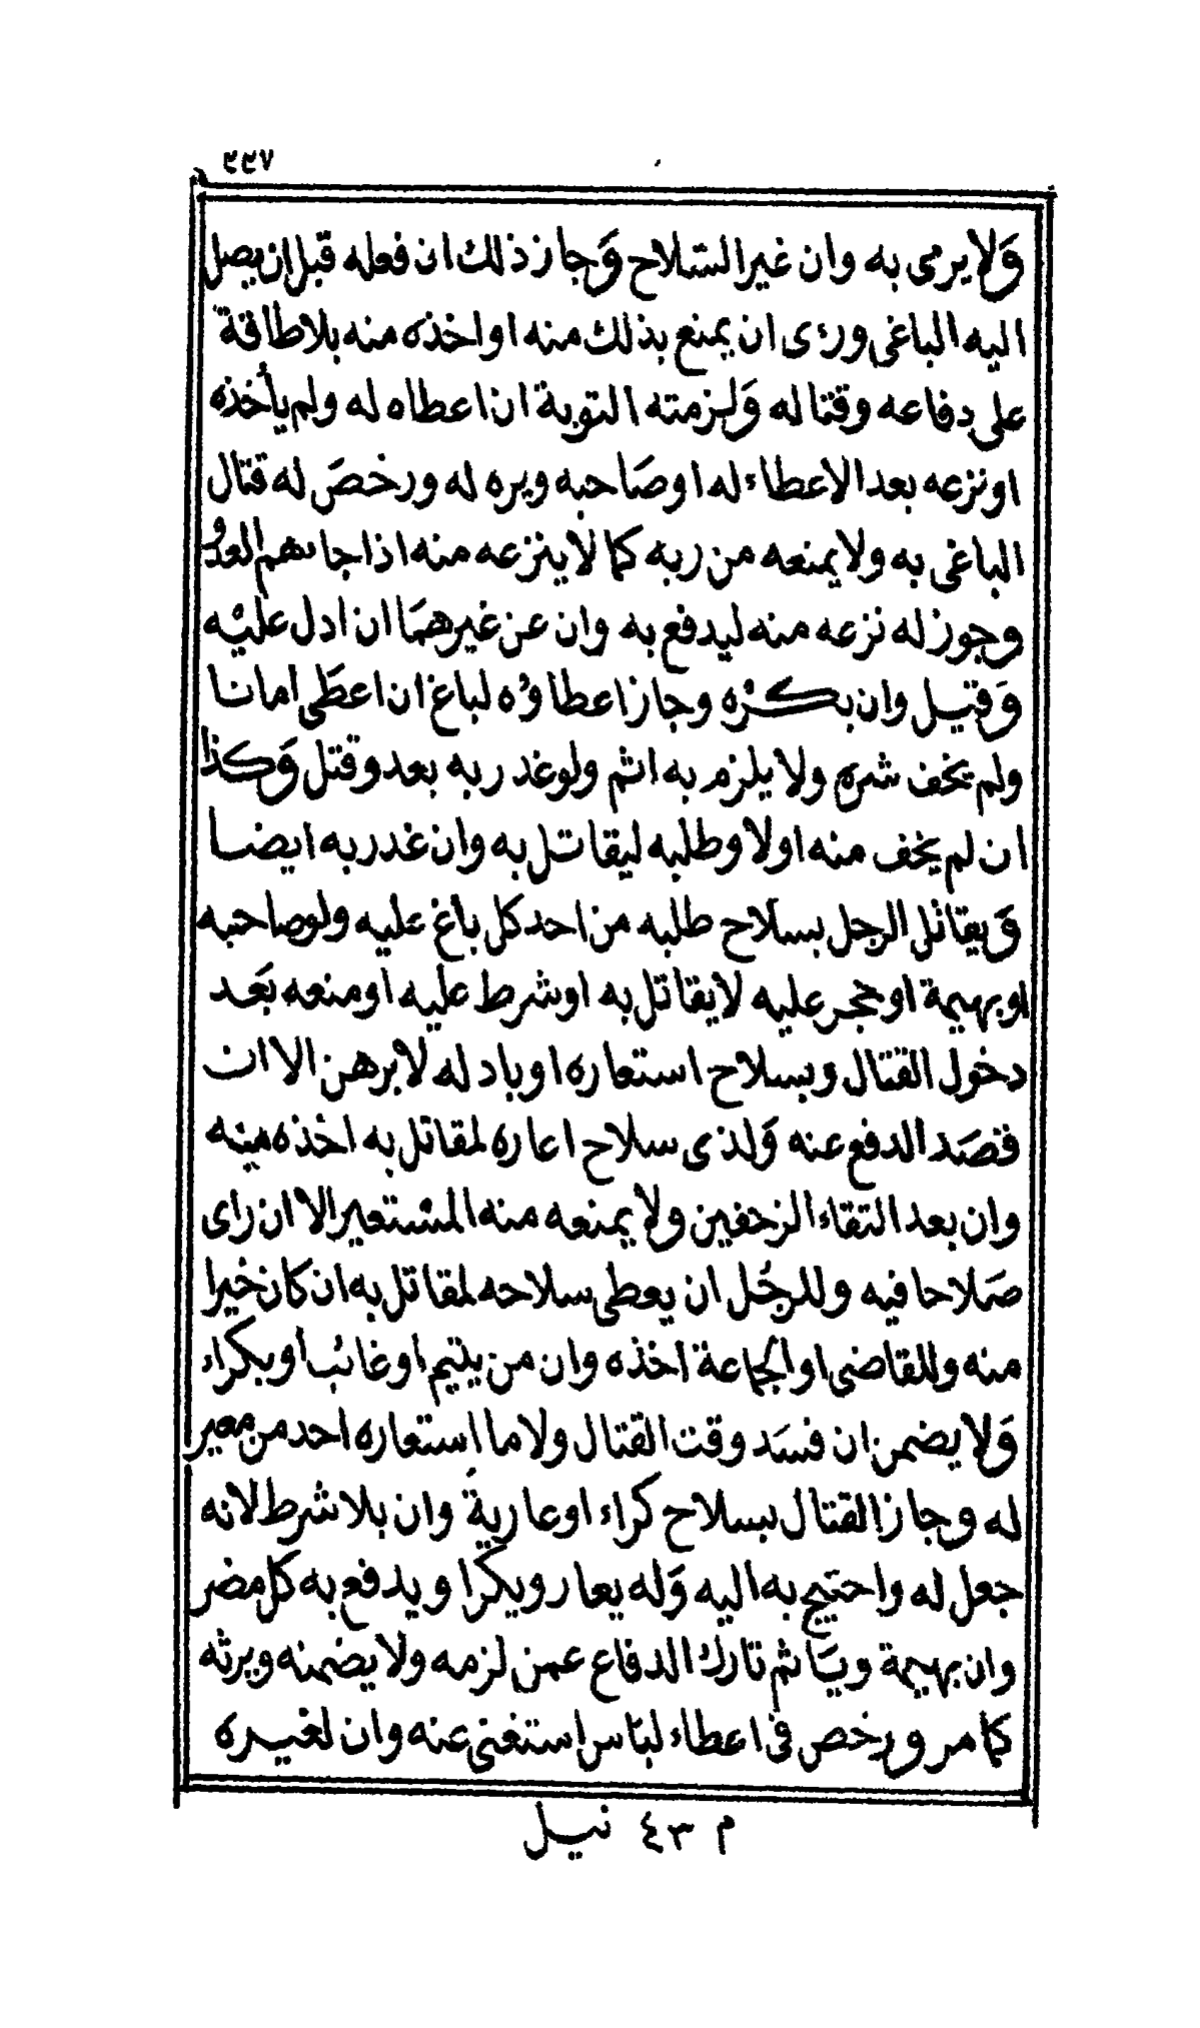 ٢٢٧
وَلا يرمى به وان غير السّلاح وَجاز ذلك ان فعله قبل ان يصل
اليه الباغى ورءى ان يمنع بذلك منه او اخذه منه بلا طاقة
على دفاعه وقتاله وَلزمته التوبة ان اعطاه له ولم يأخذه
او نزعه بعد الاعطاء له او صَاحبه ويره له ورخصَ له قتال
الباغى به ولا يمنعه من ربه كما لا ينزعه منه اذا جاءهم العدُو
وجوز له نزعه منه ليدفع به وان عن غيرهمَا ان ادل عليْه
وَقتيل وان بكرْه وجاز اعطاؤُه لباغ ان اعطَى امانا
ولم يخف شره ولا يلزم به اثم ولو غدر به بعد وقتل وَكذا
ان لم يخف منه اولا وطلبه ليقاتل به وان غدر به ايضا
وَيقاتل الرجل بسلاح طلبه من احد كل باغ عليه ولو صاحبه
او بهيمة او حجر عليه لا يقاتل به او شرط عليه او منعه بَعد
دخول القتال وبسلاح استعاره او باد له لا برهن الا ان
قصَد الدفع عنه وَلذى سلاح اعاره لمقاتل به اخذه منه
وان بعد التقاء الزحفين ولا يمنعه منه المستعير الا ان راى
صَلاحا فيه وللرجُل ان يعطى سلاحه لمقاتل به ان كان خيرا
منه وللقاضى او الجماعة اخذه وان من يتيم او غائب او بكراء
وَلا يضمن ان فسَد وقت القتال ولا ما استعاره احد من معير
له وجاز القتال بسلاح كراء او عارية وان بلا شرط لانه
جعل له واحتيج به اليه وَله يعار ويكرا ويدفع به كل مضر
وان بهيمة ويَاثم تارك الدفاع عمن لزمه ولا يضمنه ويرثه
كما مر ورخص فى اعطاء لبَاس استغنى عنه وان لغيره
م ٤٣ نيل